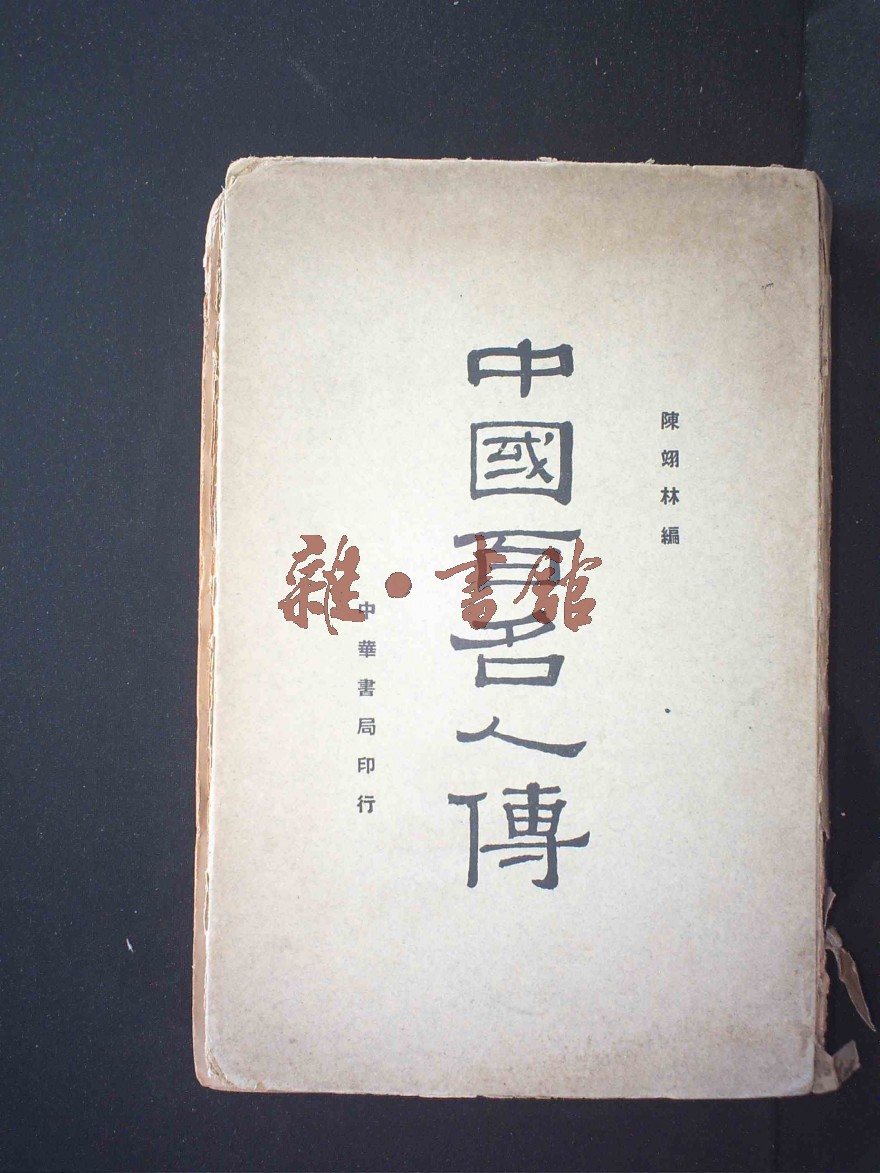 陳翊林編
中國百名人傳
中華書局印行
雜·書館